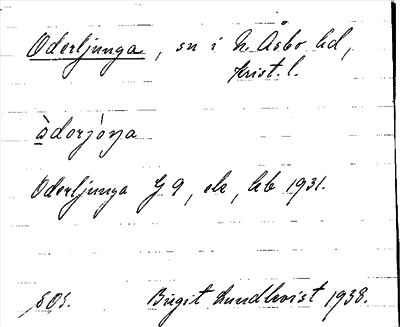 Oderljunga, sn i N. Åsbo hd,
Krist. l.
àdorjóŋa
Oderljunga G 9, ek, kb 1931.
Birgit Lundkvist 1938.